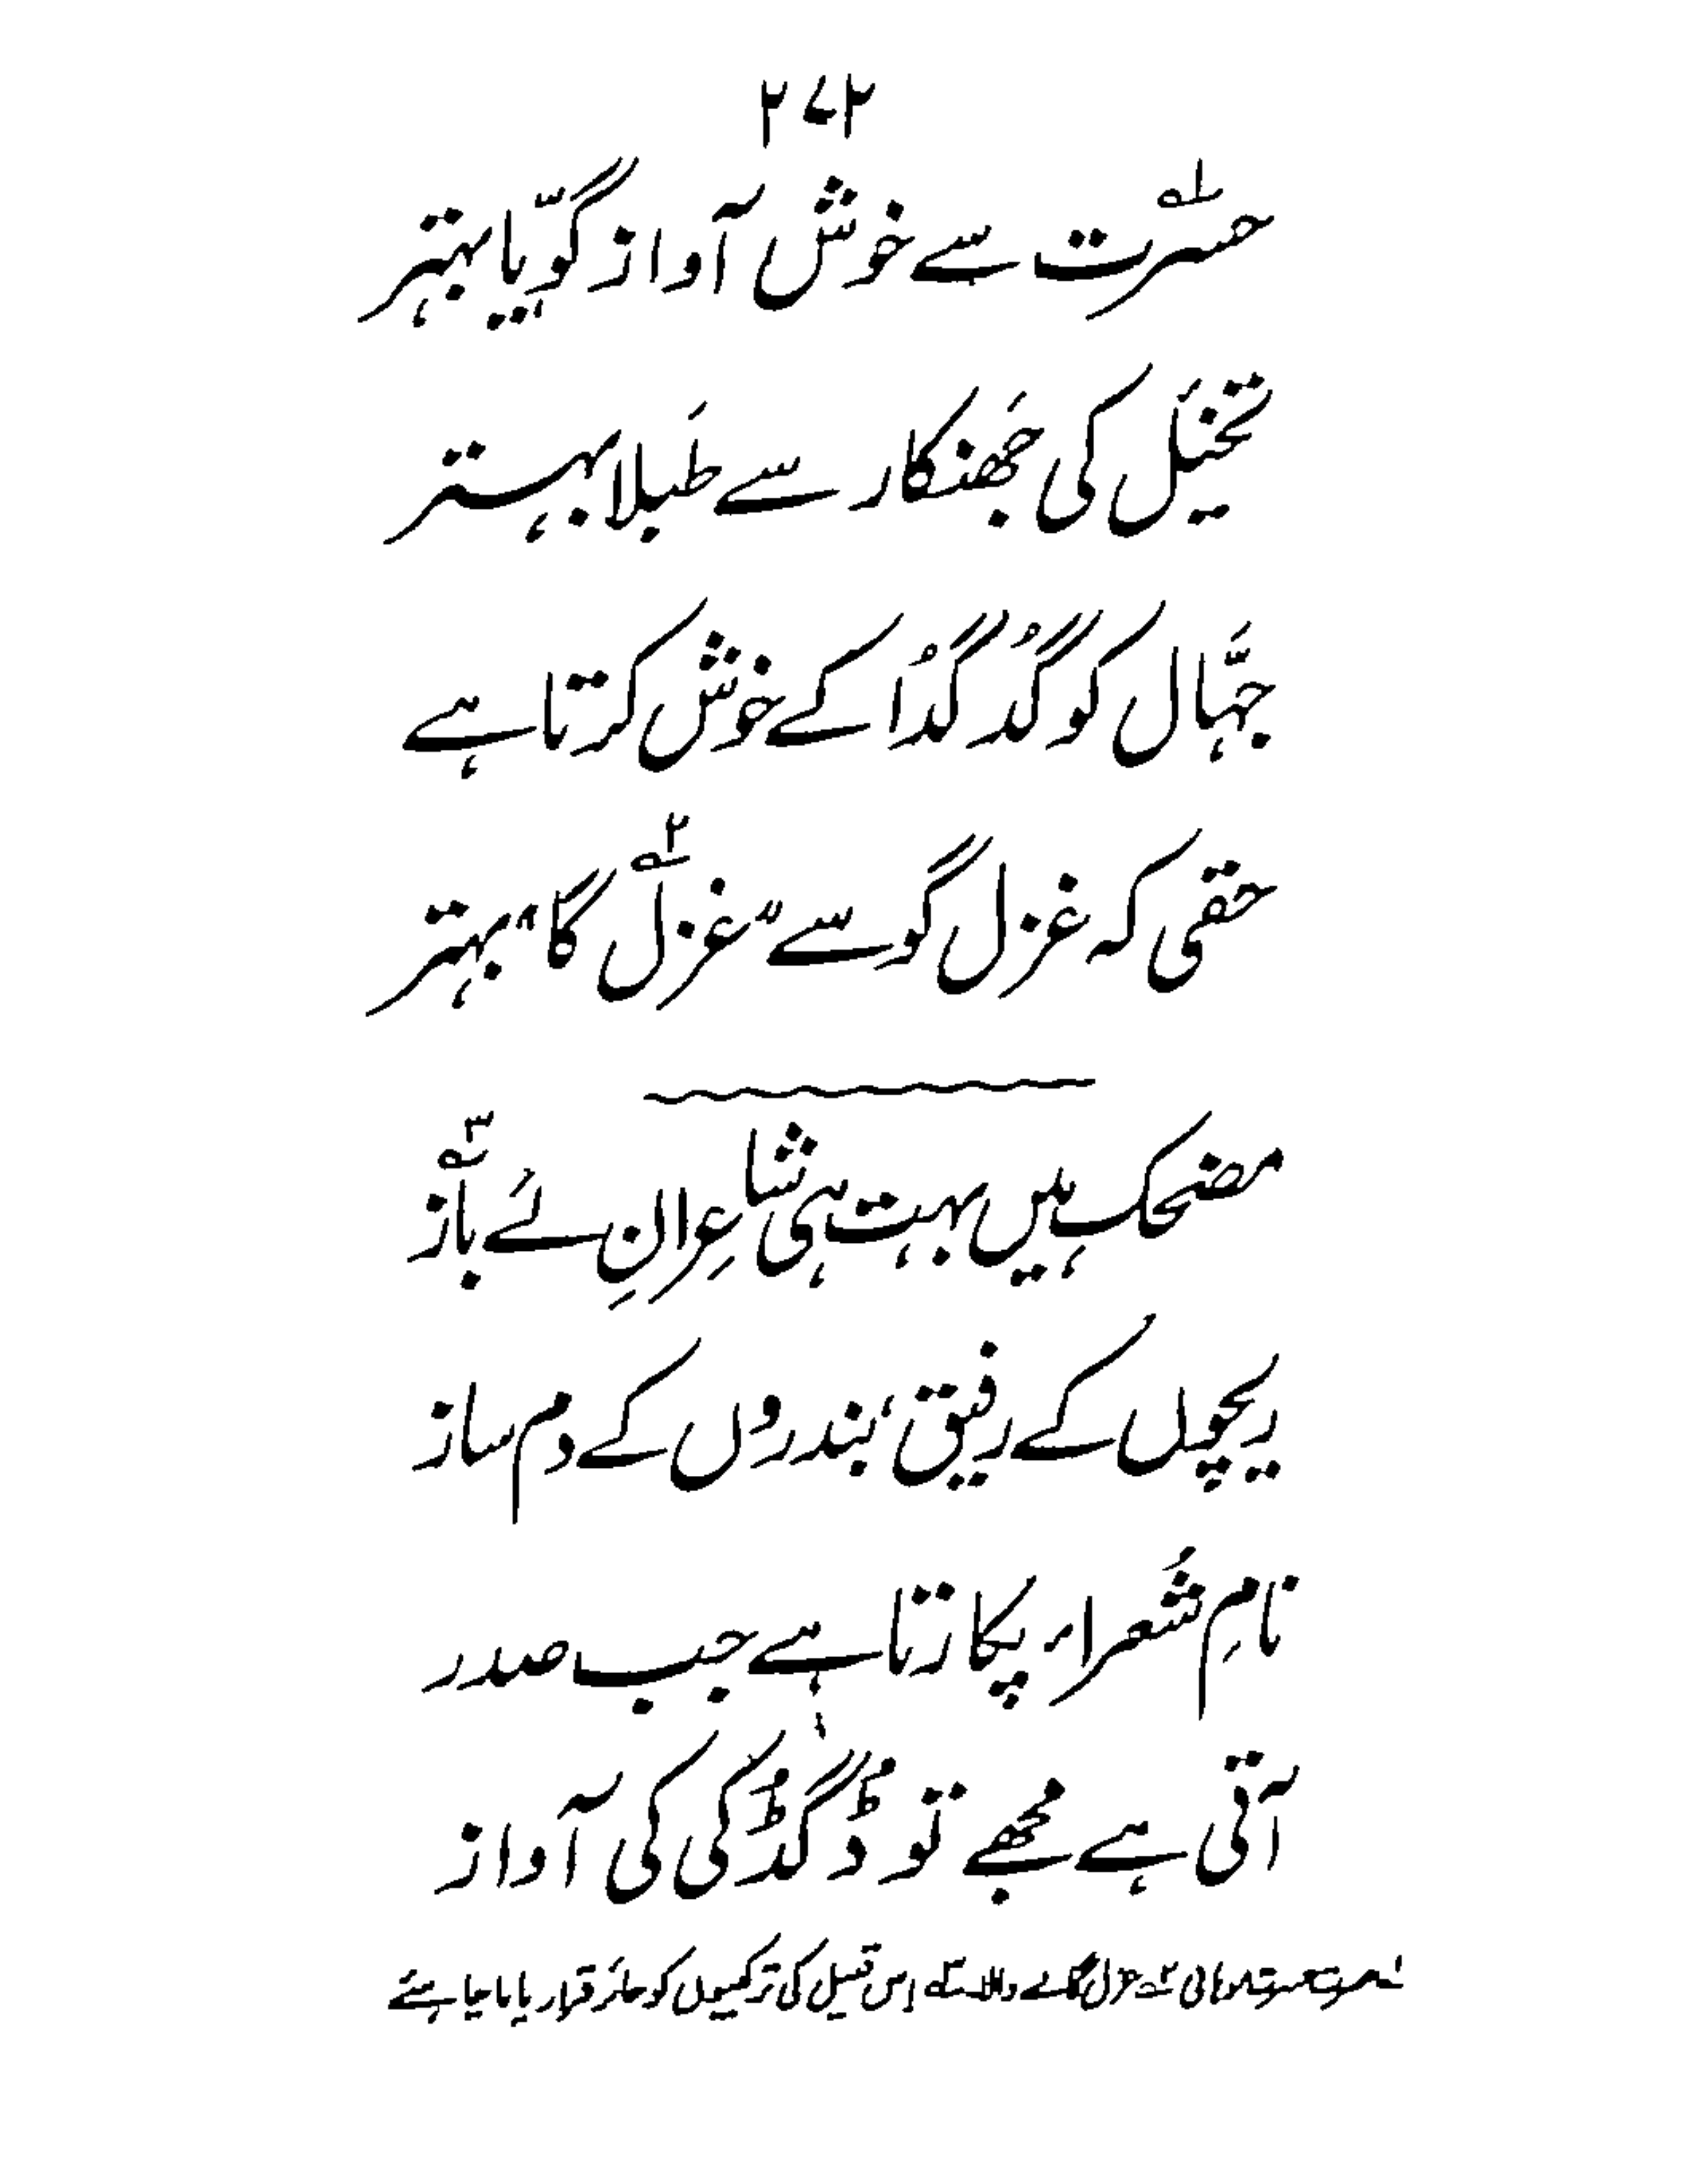 ۲۷۲
حسرت۱؎ سے خوش آواز گویّا بہتر
تخیّل کی جَھنکار سے طَبلا بہتر
جہّال کو گُدگُدا کے خوش کرتا ہے
حقی کہ غزل گو سے "غزل۲؎ گا" بہتر
مضحک ہیں بہت ہی شاعِرانِ لَے باز۳؎
ریچھوں کے رفیق، بندروں کے دم ساز
نامِ شُعرا، پکارتا ہے جب صدر
آتی ہے مجھے تو ڈُگڈُگی کی آواز
۱؎ حسرت موہانی ۲؎ غزل گانے والا ۳؎ اس قبیل کی ترکیبوں کو جائز قرار پانا چاہئے